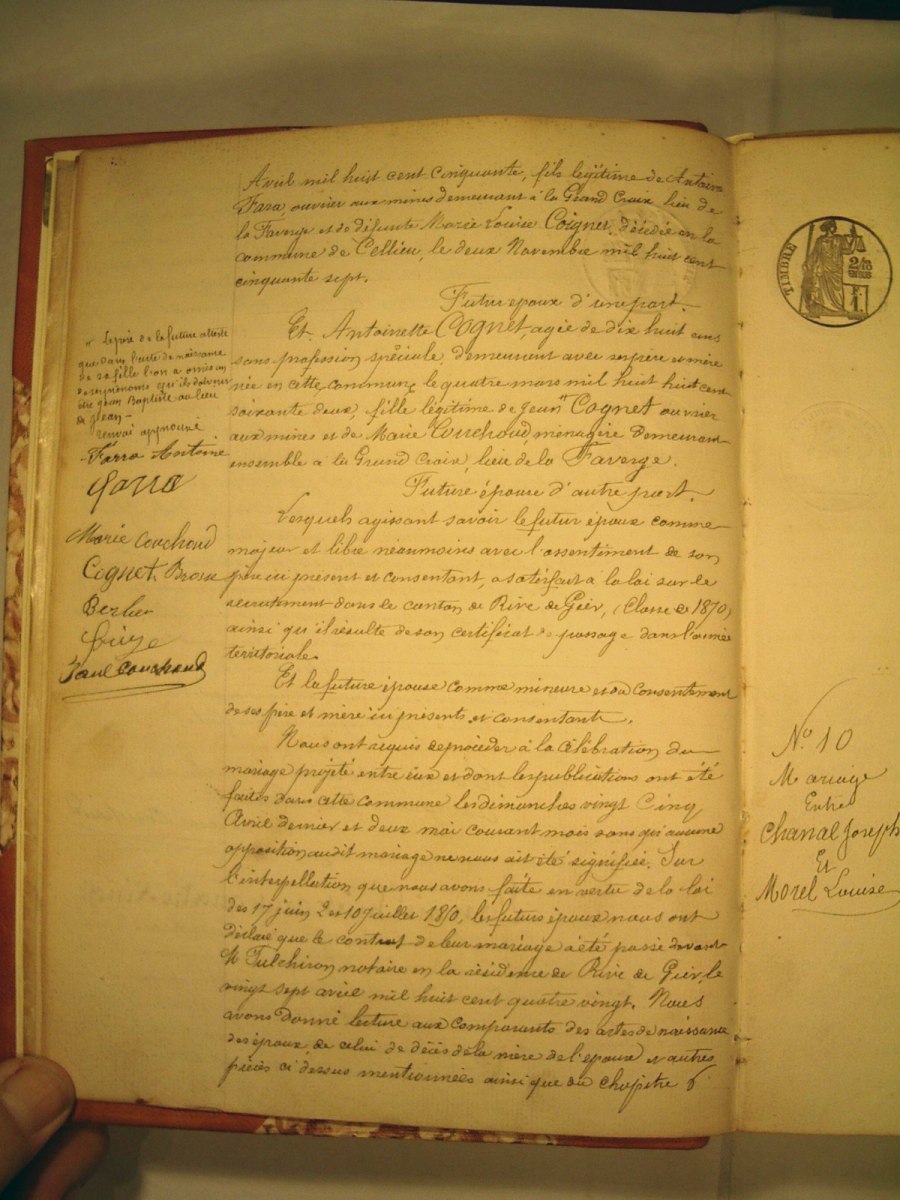 Avril mil huit cent cinquante, fils légitime de Antoine
Fara, ouvrier aux mines demeurant à la Grand Croix, lieu de
la Faverge et de défunte Marie Louise Coignet, décédée en la
commune de Cellieu, le deux Novembre mil huit cent
cinquante sept.
Futur époux d'une part.
Et Antoinette Cognet, agée de dix huit ans
sans profession spéciale demeurant avec ses père et mère
née en cette commune, le quatre mars mil huit huit cent
soixante deux, fille légitime de Jean Cognet ouvrier
aux mines et de Marie Couchoud, ménagère demeurant
ensemble à la Grand Croix, lieu de la Faverge.
Future épouse d'autre part.
Lesquels agissant savoir le futur époux comme
majeur et libre néanmoins avec l'assentiment de son
père ici présent et consentant, a satisfait à la loi sur le
recrutement dans le canton de Rive de Gier, (Classe de 1870)
ainsi qu'il résulte de son certificat de passage dans l'armée
territoriale.
Et la future épouse comme mineure et du consentement
de ses père et mère ici présents et consentants.
Nous ont requis de procéder à la célébration du
mariage projeté entre eux et dont les publications ont été
faites dans cette commune les dimanches vingt cinq
Avril dernier et deux mai courant mois sans qu'aucune
opposition audit mariage ne nous ait été signifiée. Sur
l'interpellation que nous avons faite en vertu de la loi
des 17 juin et 10 Juillet 1850, les futurs époux nous ont
déclaré que le contrat de leur mariage a été passé devant
Me Fulchiron notaire en la résidence de Rive de Gier, le
vingt sept avril mil huit cent quatre vingt. Nous
avons donné lecture aux comparants des actes de naissance
des époux de celui de décès de la mère de l'époux et autres
pièces ci dessus mentionnées ainsi que du chapitre 6
Le père de la future atteste
que dans l'acte de naissance
de sa fille l'on a omis un
de ses prénoms qui doivent
être Jean Baptiste au lieu
de Jean
renvoi approuvé
Farra Antoine
Farra
Marie Couchoud
Cognet Brosse
Berlier
Paul Couchoud
TIMBRE
No 10
Mariage
Entre
Chanal Joseph
Et
Morel Louise